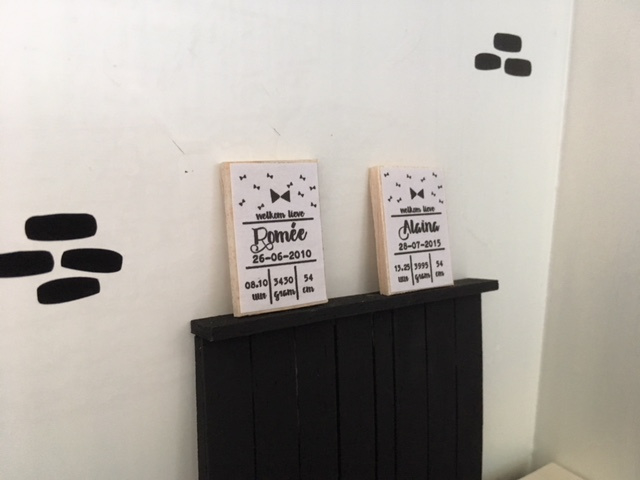 welkom lieve
Romée
26-06-2010
08.10 3430 54
uur gram cm
welkom lieve
Alaina
28-07-2015
13.25 3995 54
uur gram cm